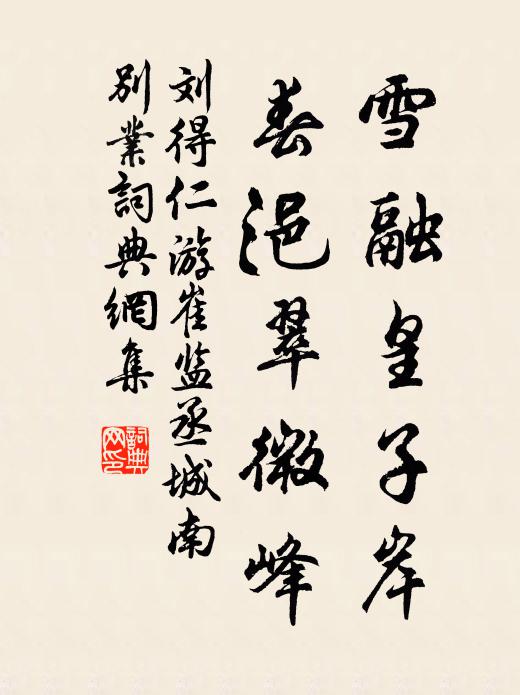 雪融皇子岸
春浥翠微峰
刘得仁游崔监丞城南
别業詞典網集
詞典
网印